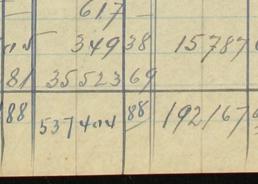 617 —
349 38 15787
81 35523 69
88 537404 88 192167